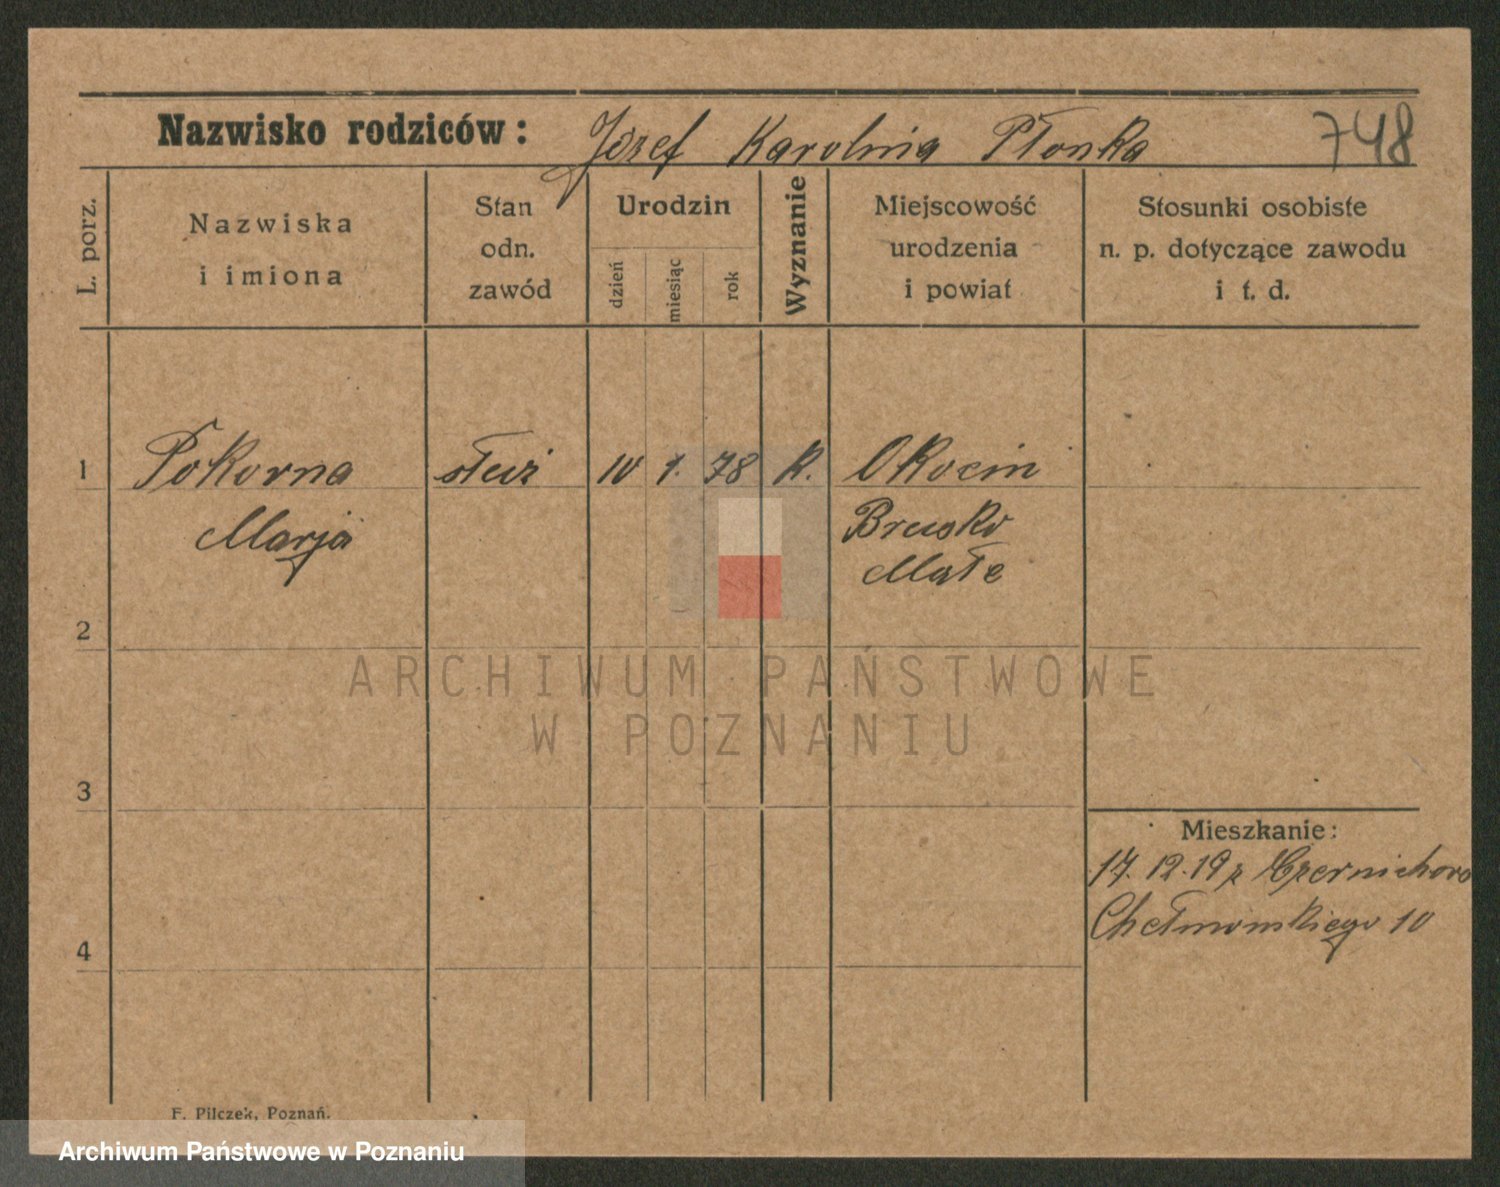 Nazwisko rodziców: Józef Karolina Płonka 748
L. porz.
Nazwiska
i imiona
Stan
odn.
zawód
Urodzin
dzień
miesiąc
rok
Wyznanie
Miejscowość
urodzenia
i powiat
Stosunki osobiste
n. p. dotyczące zawodu
i t. d.
1 Pokorna służ 10 1. 78 K. Okocim
Marja
Brusko
Małe
2
3
4
Mieszkanie:
17.12.19 z Czernichowo
Chełmońskiego 10
F. Pilczek, Poznań.
ARCHIWUM PAŃSTWOWE
W POZNANIU
Archiwum Państwowe w Poznaniu